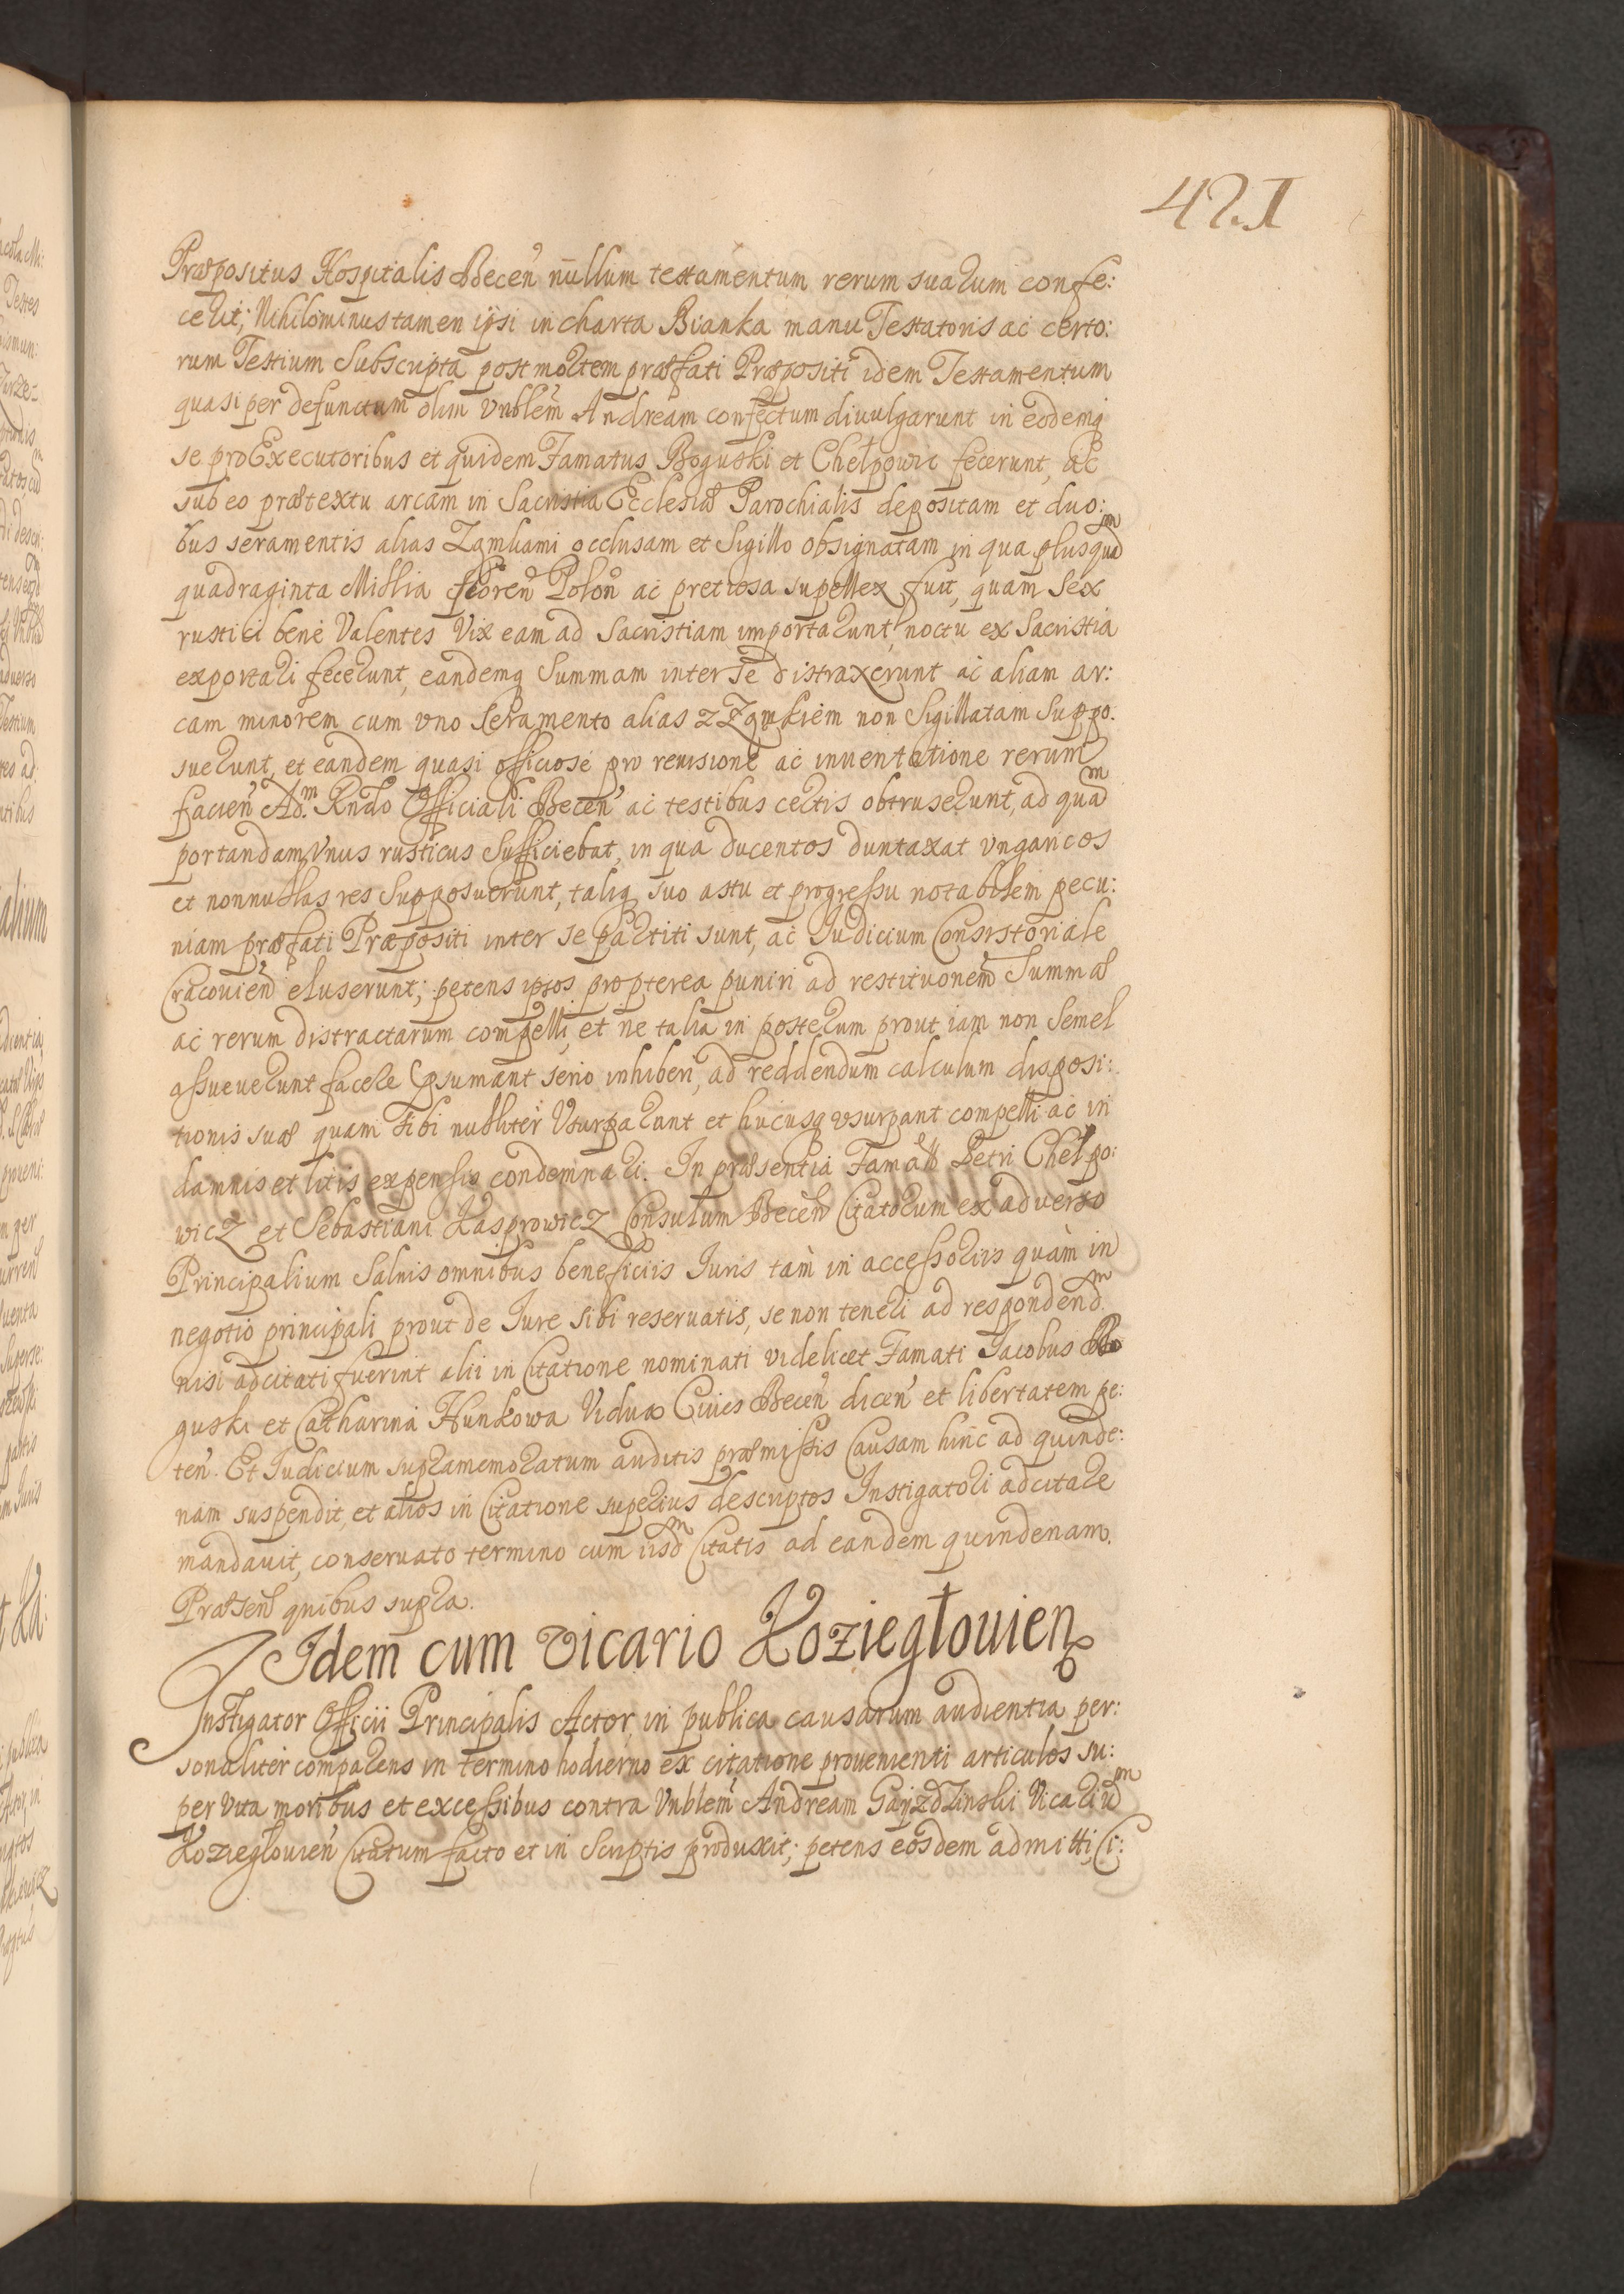 421
Præpositus Hospitalis Becen̄ nullum testamentum rerum suarum confe:
cerit; Nihilominus tamen ijsi in charta Bianka manu Testatoris ac certo:
rum Testium Subscripta post mortem præfati Præpositi idem Testamentum
quasi per defunctum olim Vnblem Andream confectum diuulgarunt in eodemq
se pro Executoribus et quidem Famatus Boguski et Chełpowic fecerunt, ac
sub eo prætextu arcam in Sacristia Ecclesiæ Parochialis depositam et duo:
bus seramentis alias Zamkami occlusam et Sigillo obsignatam in qua plusquam
quadraginta Millia floren Polon ac pretiosa supellex fuit, quam Sex
rustici bene Valentes Vix eam ad Sacristiam importarunt, noctu ex Sacristia
exportari fecerunt, eandemq Summam inter se distraxerunt ac aliam ar:
cam minorem cum vno Seramento alias z Zamkiem non Sigillatam Suppo.
suerunt, et eandem quasi officiose pro reuisione ac inuentatione rerum
facien Adm. Rndo Officiali Becen ac testibus certis obtruserunt, ad quam
portandam Vnus rusticus Sufficiebat, in qua ducentos duntaxat vngaricos
et nonnullas res Supposuerunt, taliq suo astu et progressu notabilem pecu:
niam præfati Præpositi inter se partiti sunt, ac Judicium Consistoriale
Cracouien eluserunt; petens ipsos propterea puniri ad restituonem Summæ
ac rerum distractarum compelli, et ne talia in posterum prout iam non Semel
assueuerunt facere præsumant serio inhiberi, ad reddendum calculum disposi:
tionis suæ quam Sibi nulliter Vsurparunt et hucusq vsurpant compelli ac in
damnis et litis expensis condemnari. In præsentia Famatt Petri Chełpo:
wicz et Sebastiani Kasprowicz Consulum Becen Citatorum ex aduerso
Principalium Saluis omnibus beneficiis Juris tam in accessoriis quàm in
negotio principali prout de Jure sibi reseruatis, se non teneri ad respondendm
nisi adcitati fuerint alii in Citatione nominati videlicet Famati Jacobus Bo
guski et Catharina Hunkowa Vidua Ciues Becen dicen et libertatem pe:
ten. Et Judicium supramemoratum auditis præmissis Causam hinc ad quinde:
nam suspendit, et alios in Citatione superius descriptos Instigatori adcitare
mandauit, conseruato termino cum iisdm Citatis ad eandem quindenam.
Præsen quibus supra.
Idem cum Vicario Koziegłouien
Instigator Officii Principalis Actor in publica causarum audientia per:
sonaliter comparens in termino hodierno ex citatione prouenienti articulos su:
per vita moribus et excessibus contra Vnblem Andream Gayzdzinski Vicarium
Kozieglouien Citatum facto et in Scriptis produxit; petens eosdem admitti, Ci: